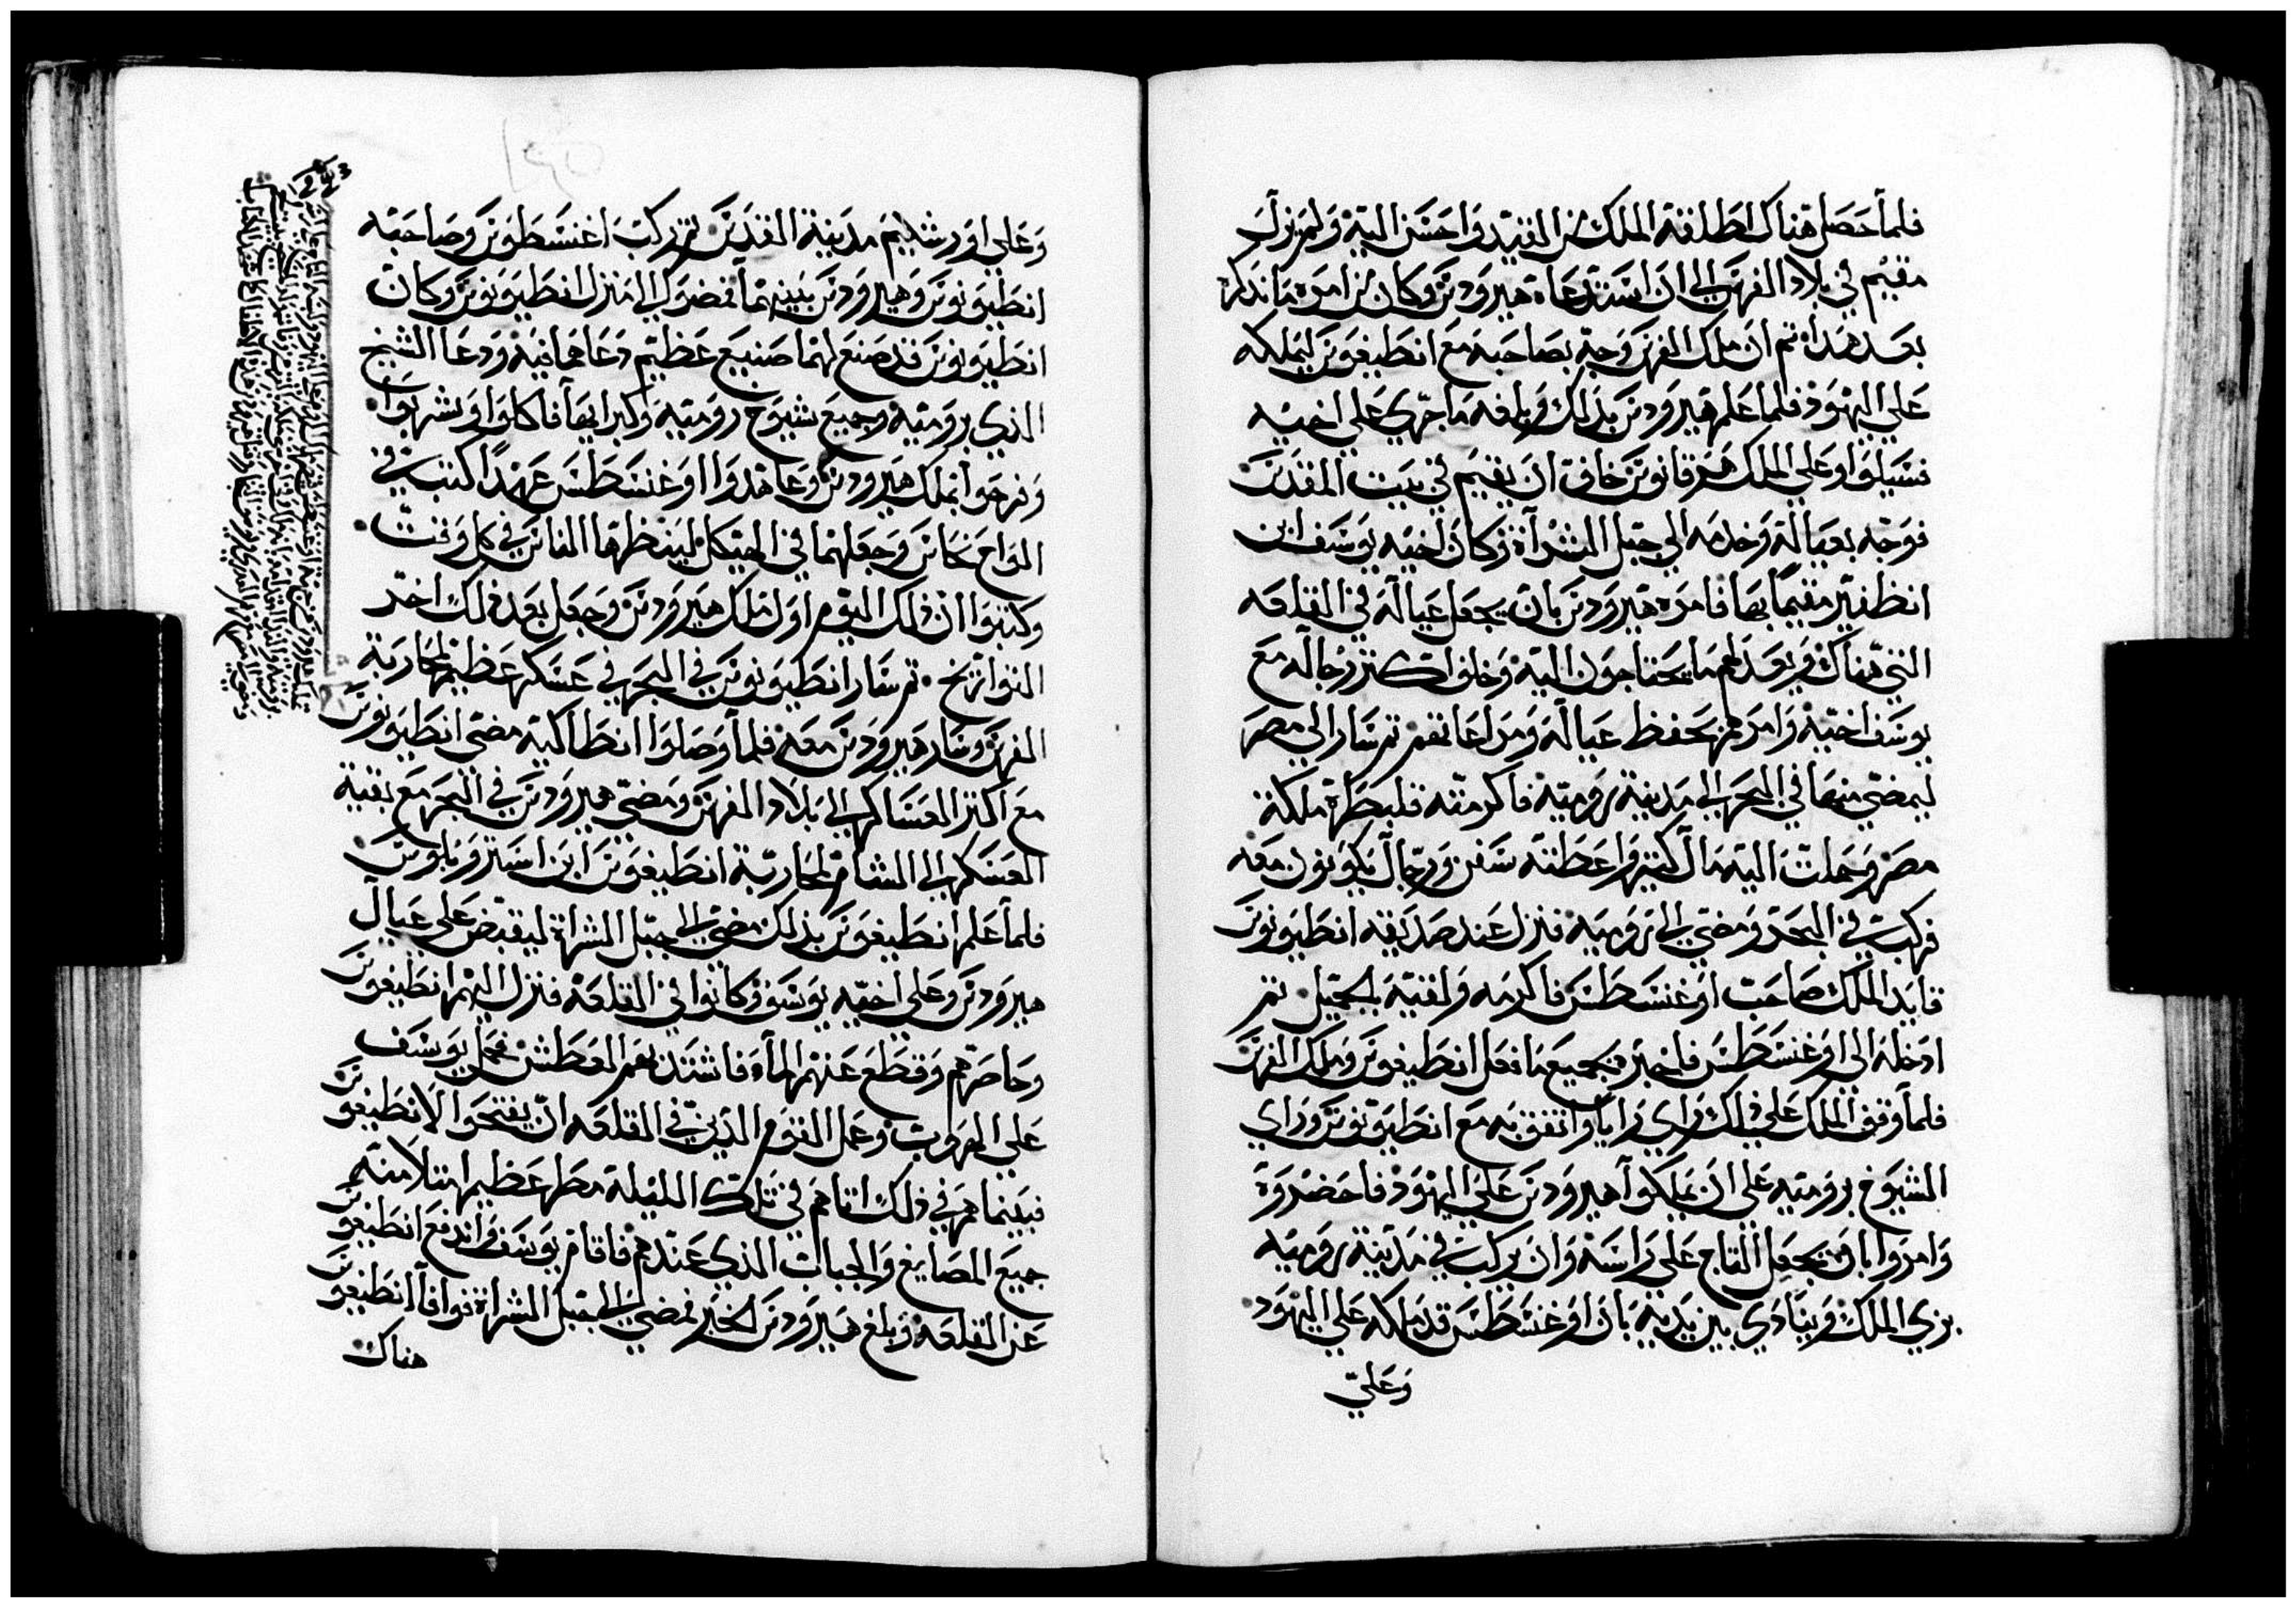 فلما حصل هناك اطلقه الملك من القيد واحسن اليه ولم يزل
مقيم في بلاد الفرس الى ان استدعاه هيرودس وكان من امره ما نذكره
بعد هذا ثم ان ملك الفرس وجه بصاحبه مع انطيغوس ليملكه
علي اليهود فلما علم هيرودس بذلك وبلغه ما جري علي اخيه
فسيلوا وعلي الملك هرقانوس خاف ان يقيم في بيت المقدس
فوجه بعياله وخدمه الي جبل الشراة وكان اخيه يوسف ابن
انطفير مقيمًا بها فامره هيرودس بان يجعل عياله في القلعه
التي هناك ويعد لهم ما يحتاجون اليه وخلف اكثر رجاله مع
يوسف اخيه وامرهم بحفظ عياله ومراعاتهم ثم سار الي مصر
ليمضي منها في البحر الي مدينة روميه فاكرمته قلبطرة ملكة
مصر وحملت اليه مال كثير واعطته سفن ورجال يكونون معه
فركب في البحر ومضي الي روميه فنزل عند صديقه انطيونوس
قايد الملك صاحب اوغسطس فاكرمه ولقيه بالجميل ثم
ادخله الى اوغسطس فاخبره بجميع ما فعل انطيغوس وملك الفرس
فلما وقف الملك علي ذلك راي رايا واتفق به مع انطيونوس وراي
الشيوخ بروميه علي ان يملكوا هيرودس علي اليهود فاحضروه
وامروا بان يجعل التاج علي راسه وان يركب في مدينة روميه
بزي الملك وينادي بين يديه بان اوغسطس قد ملكه علي اليهود
وعلي
وعلي اورشليم مدينة القدس ثم ركب اغسطوس وصاحبه
انطيونوس وهيرودس بينهما فمضوا الي منزل انطيونوس وكان
انطيونوس قد صنع لهما صنيع عظيم دعاهما فيه ودعا الشيخ
الذي بروميه وجميع شيوخ روميه وكبرايها فاكلوا وشربوا
وفرحوا بملك هيرودس وعاهدوا اوغسطس عهدًا كتب في
الواح نحاس وجعلهما في الهيكل لينظرها الناس في كل وقت
وكتبوا ان ذلك اليوم اول ملك هيرودس وجعل بعد ذلك اخر
التواريخ ثم سار انطيونوس في البحر في عسكر عظيم لمحاربة
الفرس وسار هيرودس معه فلما وصلوا انطاكيه مضي انطيونوس
مع اكثر العساكر الي بلاد الفرس ومضي هيرودس في البحر مع بقية
العسكر الي الشام لمحاربة انطيغوس ابن استروبلوس
فلما علم انطيغوس بذلك مضي الي جبل الشراة ليقبض علي عيال
هيرودس وعلي اخيه يوسف وكانوا في القلعة فنزل اليهم انطيغوس
وحاصرهم وقطع عنهم الماء فاشتد بهم العطش فعمل يوسف
علي الهروب وعمل القوم الذين في القلعه ان يفتحوا لانطيغوس
فبينما هم في ذلك اتاهم في تلك الليلة مطر عظيم امتلا منه
جميع المصانع والجباب الذي عندهم فاقام يوسف واندفع انطيغوس
عن القلعه وبلغ هيرودس الخبر فمضي الي جبل الشراة فوافا انطيغوس
هناك